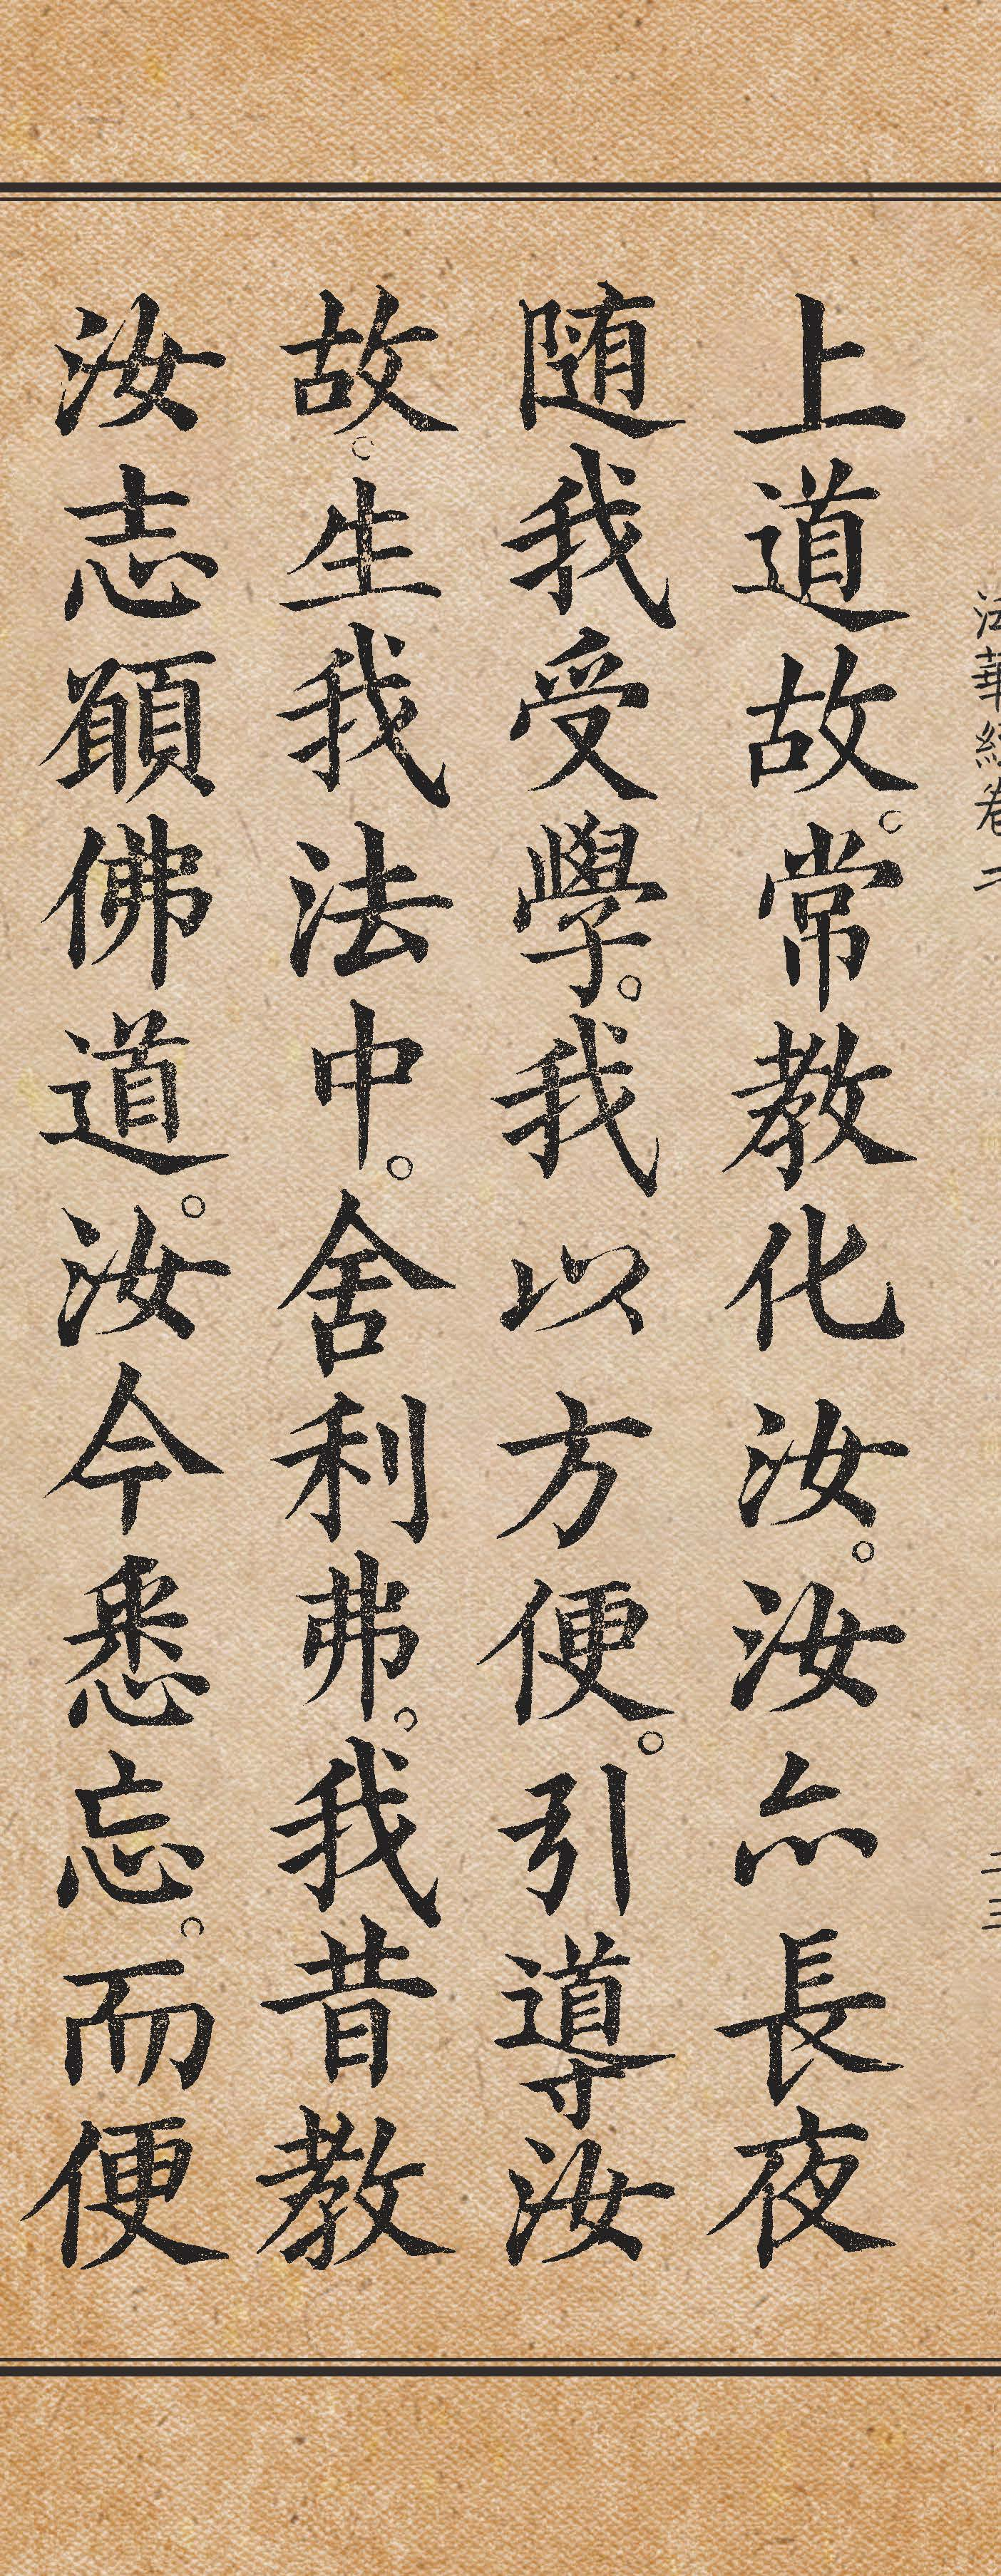 法華經卷二
二三
上道故。常教化汝。汝亦長夜
随我受學。我以方便。引導汝
故。生我法中。舍利弗。我昔教
汝志願佛道。汝今悉忘。而便